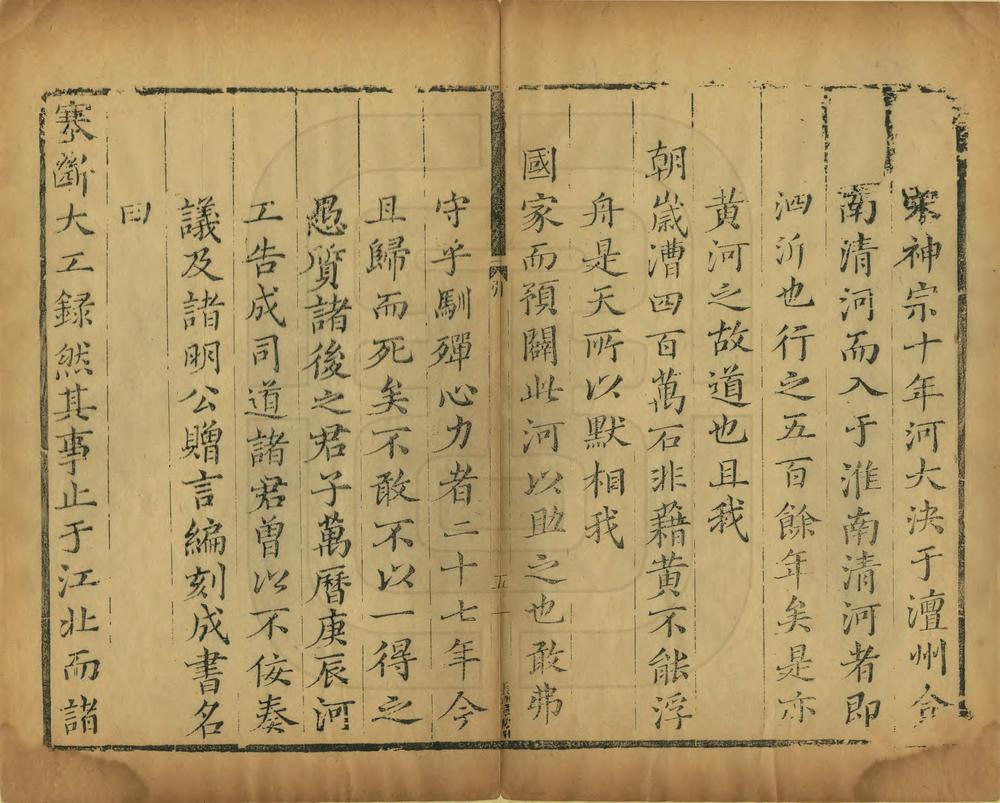 宋神宗十年河大決于澶州合
南清河而入于淮南清河者即
泗沂也行之五百餘年矣是亦
黄河之故道也且我
朝歲漕四百萬石非藉黄不能浮
舟是天所以默相我
國家而預闢此河以助之也敢弗
引
五
守乎馴殫心力者二十七年今
且歸而死矣不敢不以一得之
愚質諸後之君子萬曆庚辰河
工告成司道諸君曽以不佞奏
議及諸明公贈言編刻成書名
曰
塞斷大工録然其事止于江北而諸